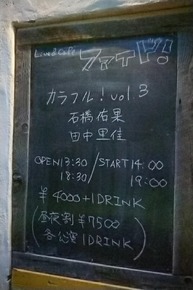 Live & Cafe
ファイト!
カラフル!vol.3
石橋佑果
田中里佳
OPEN 13:30/START 14:00
18:30/ 19:00
¥4000+1DRINK
(昼夜割¥7500
各公演1DRINK)